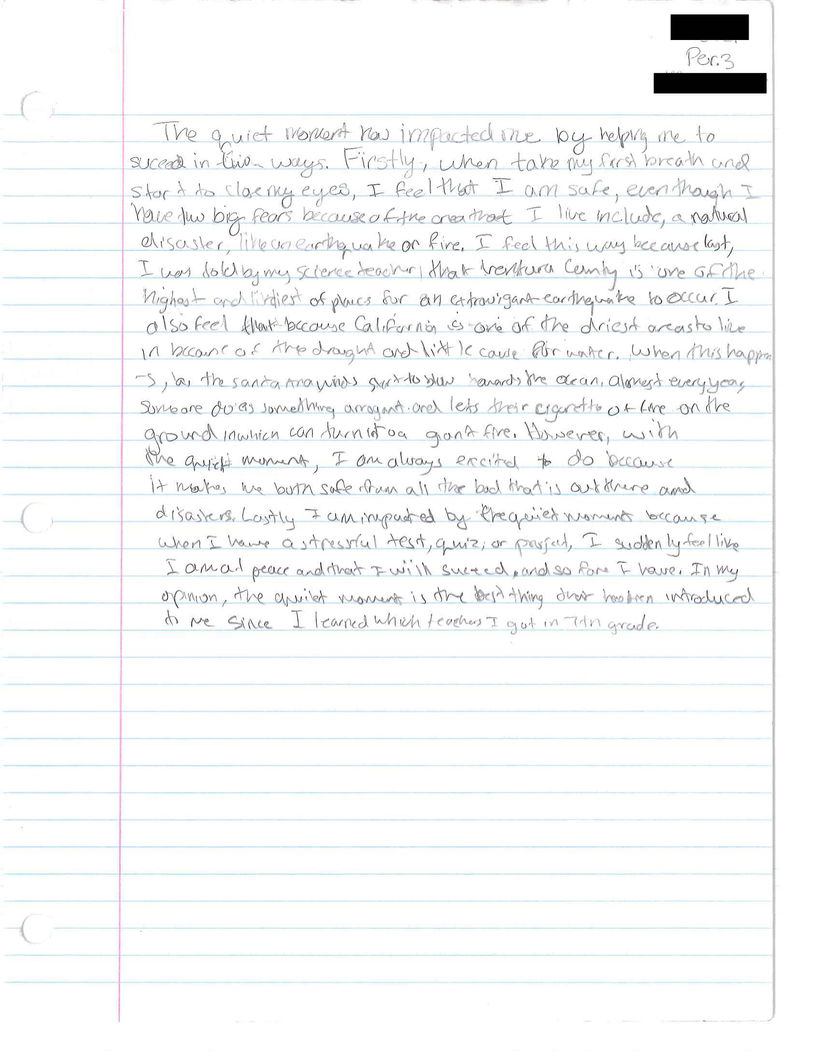 Per.3
The quiet moment has impacted me by helping me to
succed in two ways. Firstly, when take my first breath and
start to close my eyes, I feel that I am safe, even though I
have two big fears because of the area that I live include, a natural
disaster, like an earthquake or fire. I feel this way because last,
I was told by my science teacher, that Ventura County is one of the
highest and of places for an extravigant earthquake to occur. I
also feel that because California is one of the driest areas to live
in because of the draught and little cause for water. When this happen
-s, the santa ana winds start to blow towards the ocean. Almost every year,
someone do'es something arragant and lets their cigarette of fire on the
ground in which can turn into a giant fire. However, with
the quiet moment, I am always excited to do because
it makes me both safe from all the bad that is out there and
disasters. Lastly I am impacted by the quiet moment because
when I have a stressful test, quiz, or project, I suddenly feel like
I am at peace and that I will succeed, and so fare I have. In my
opinion, the quiet moment is the best thing that has been introduced
to me since I learned which teachers I got in 7th grade.